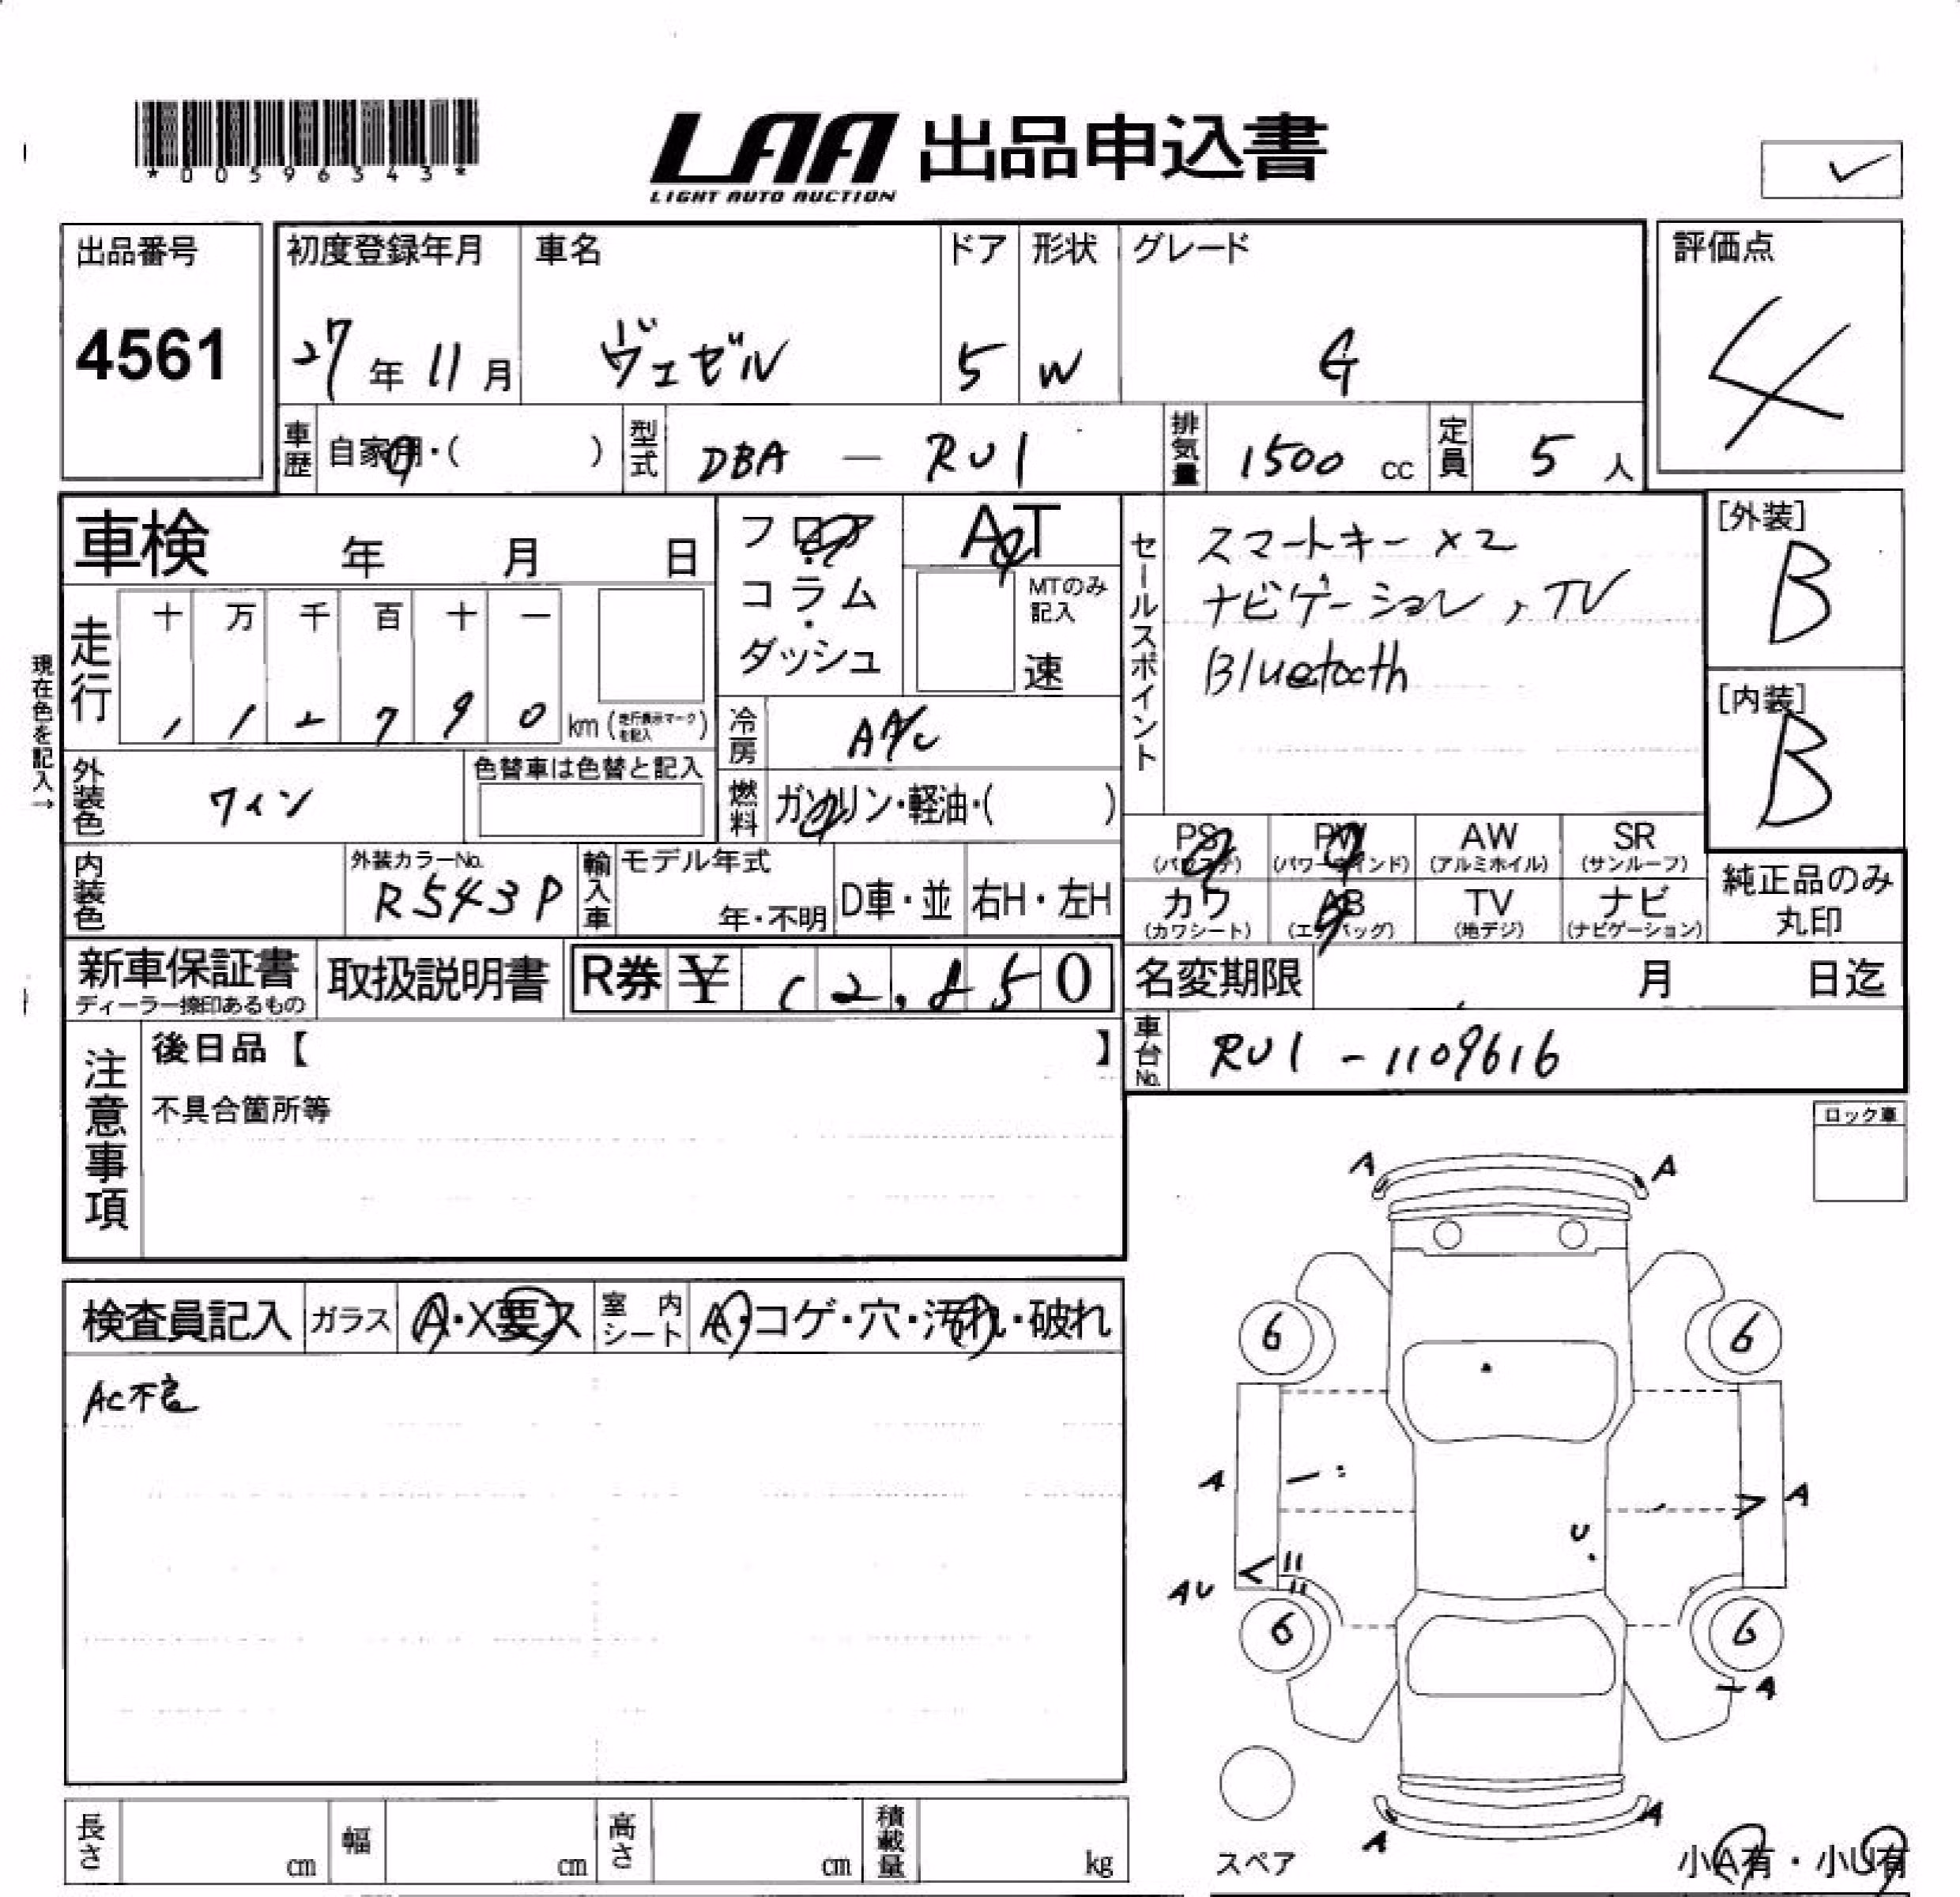 *00596343*
LAA 出品申込書
LIGHT AUTO AUCTION
✓
出品番号
4561
初度登録年月
27年11月
車名
ヴェゼル
ドア
5
形状
W
グレード
G
評価点
4
車歴
自家用・( )
型式
DBA － RU1
排気量
1500 cc
定員
5 人
車検 年 月 日
フロア
・
コラム
・
ダッシュ
AT
MTのみ
記入
速
セールスポイント
スマートキー×2
ナビゲーション, TV
Bluetooth
[外装]
B
[内装]
B
現在色を記入→
走行
十 万 千 百 十 一
1 1 2 7 9 0 km (走行表示マークを記入)
冷房
AA/C
外装色
ワイン
色替車は色替と記入
燃料
ガソリン・軽油・( )
内装色
外装カラーNo.
R543P
輸入車
モデル年式
年・不明
D車・並
右H・左H
PS
(パワステ)
PW
(パワーウインド)
AW
(アルミホイル)
SR
(サンルーフ)
カワ
(カワシート)
AB
(エアバッグ)
TV
(地デジ)
ナビ
(ナビゲーション)
純正品のみ
丸印
新車保証書
ディーラー捺印あるもの
取扱説明書
R券 ¥ 2,850
名変期限 月 日迄
車台No.
RU1 - 1109616
注意事項
後日品【 】
不具合箇所等
ロック車
検査員記入
ガラス
A・X要ス
室内
シート
A・コゲ・穴・汚れ・破れ
AC不良
A A
6 6
A A
U
AU
6 6
A
A A
スペア
小A有・小U有
長さ cm
幅 cm
高さ cm
積載量 kg